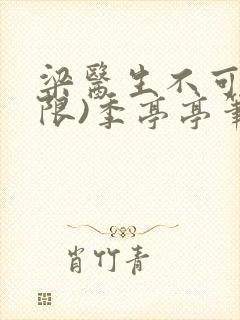 梁醫生不可
限)季亭亭筆
肖竹青